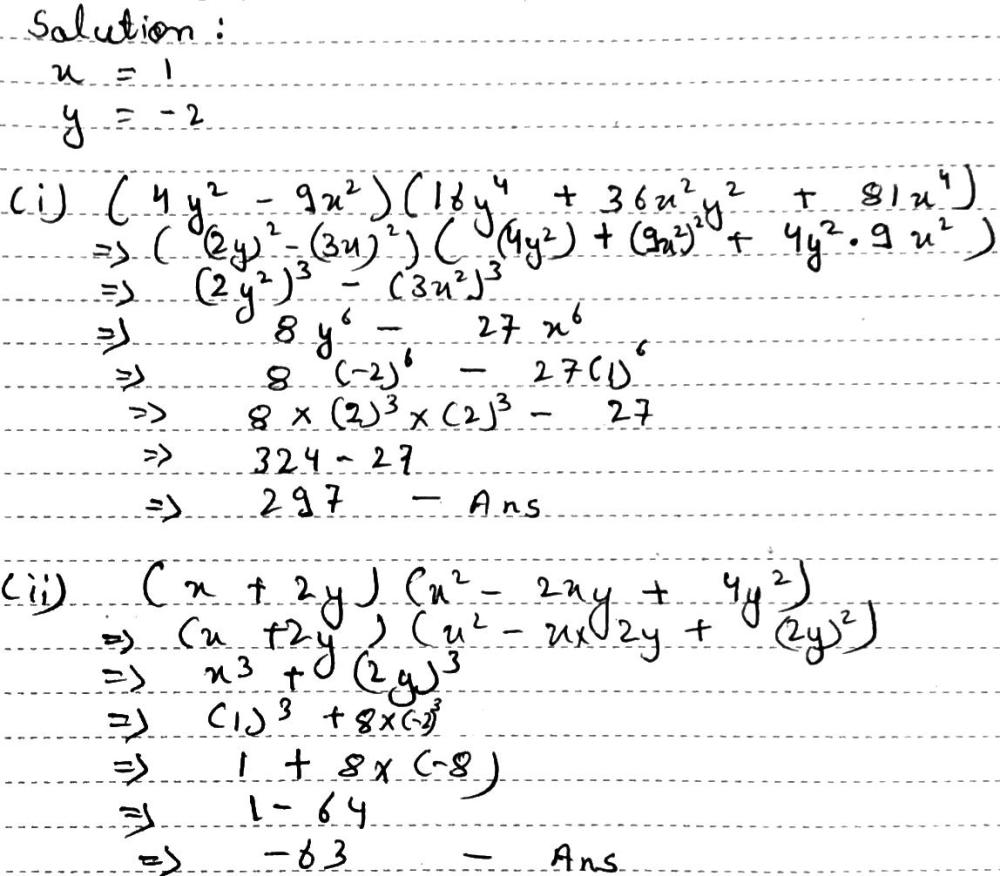 Solution :
x = 1
y = -2
(i) (4y² - 9x²)(16y⁴ + 36x²y² + 81x⁴)
=> ((2y)² - (3x)²)((4y²) + (9x²)² + 4y² · 9x²)
=> (2y²)³ - (3x²)³
=> 8y⁶ - 27x⁶
=> 8 (-2)⁶ - 27(1)⁶
=> 8 × (2)³ × (2)³ - 27
=> 324 - 27
=> 297 - Ans
(ii) (x + 2y)(x² - 2xy + 4y²)
=> (x + 2y)(x² - x × 2y + (2y)²)
=> x³ + (2y)³
=> (1)³ + 8×(-2)³
=> 1 + 8 × (-8)
=> 1 - 64
=> -63 - Ans